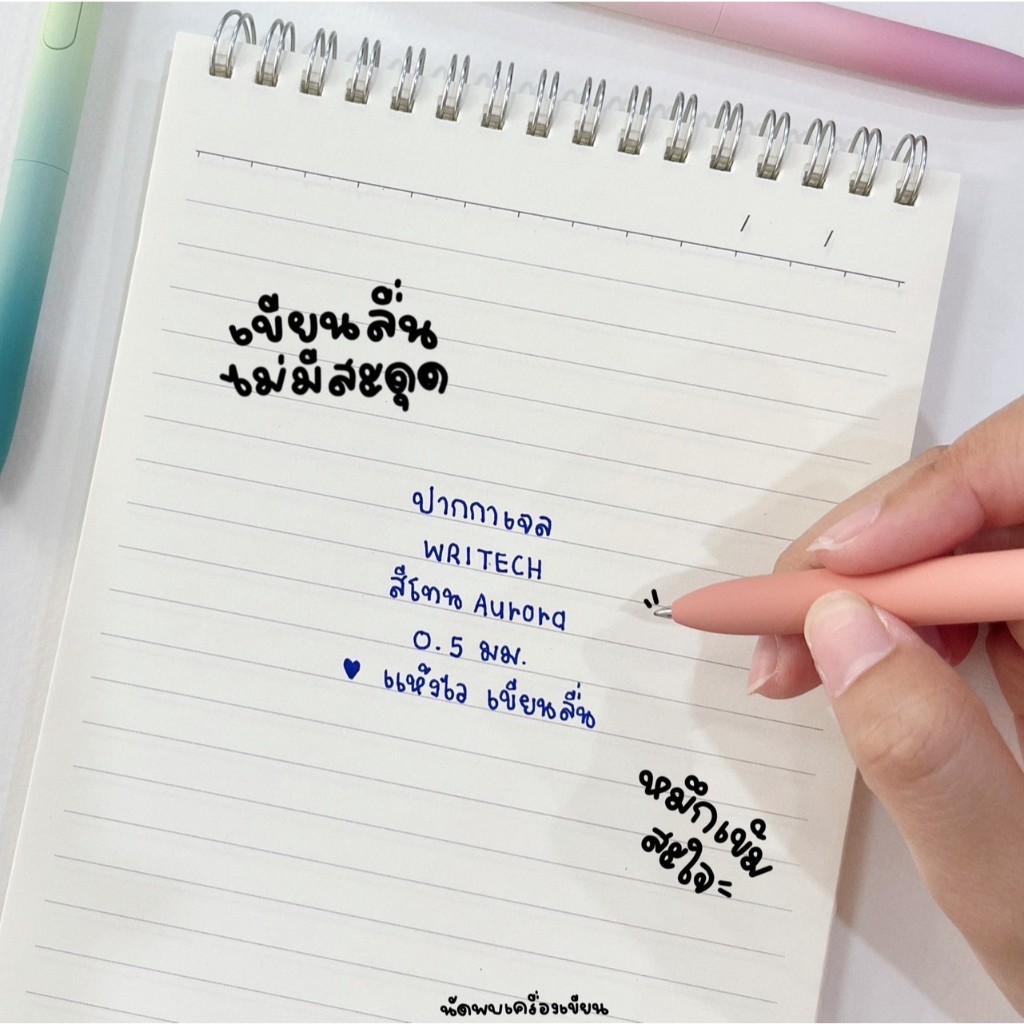 เขียนลื่น
ไม่มีสะดุด
ปากกาเจล
WRITECH
สีโทน Aurora
0.5 มม.
♥ แห้งไว เขียนลื่น
หมึกเข้ม
สะใจ
นัดพบเครื่องเขียน